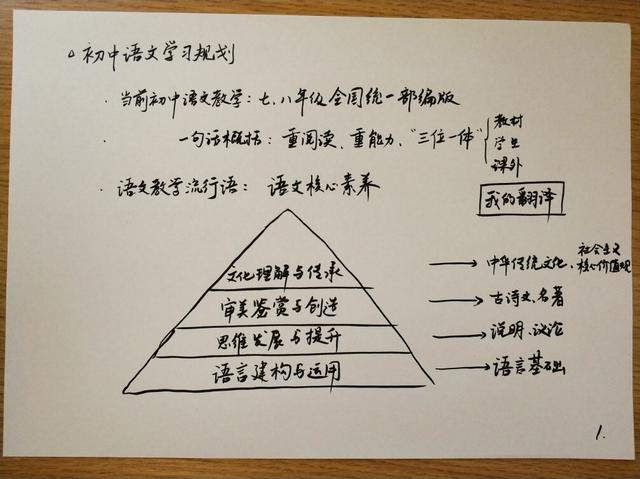 初中语文学习规划
· 当前初中语文教学：七、八年级全国统一部编版
一句话概括：重阅读、重能力、“三位一体”
教材
学生
课外
· 语文教学流行语：语文核心素养
我的翻译
文化理解与传承
中华传统文化、社会主义核心价值观
审美鉴赏与创造
古诗文、名著
思维发展与提升
说明、议论
语言建构与运用
语言基础
1.